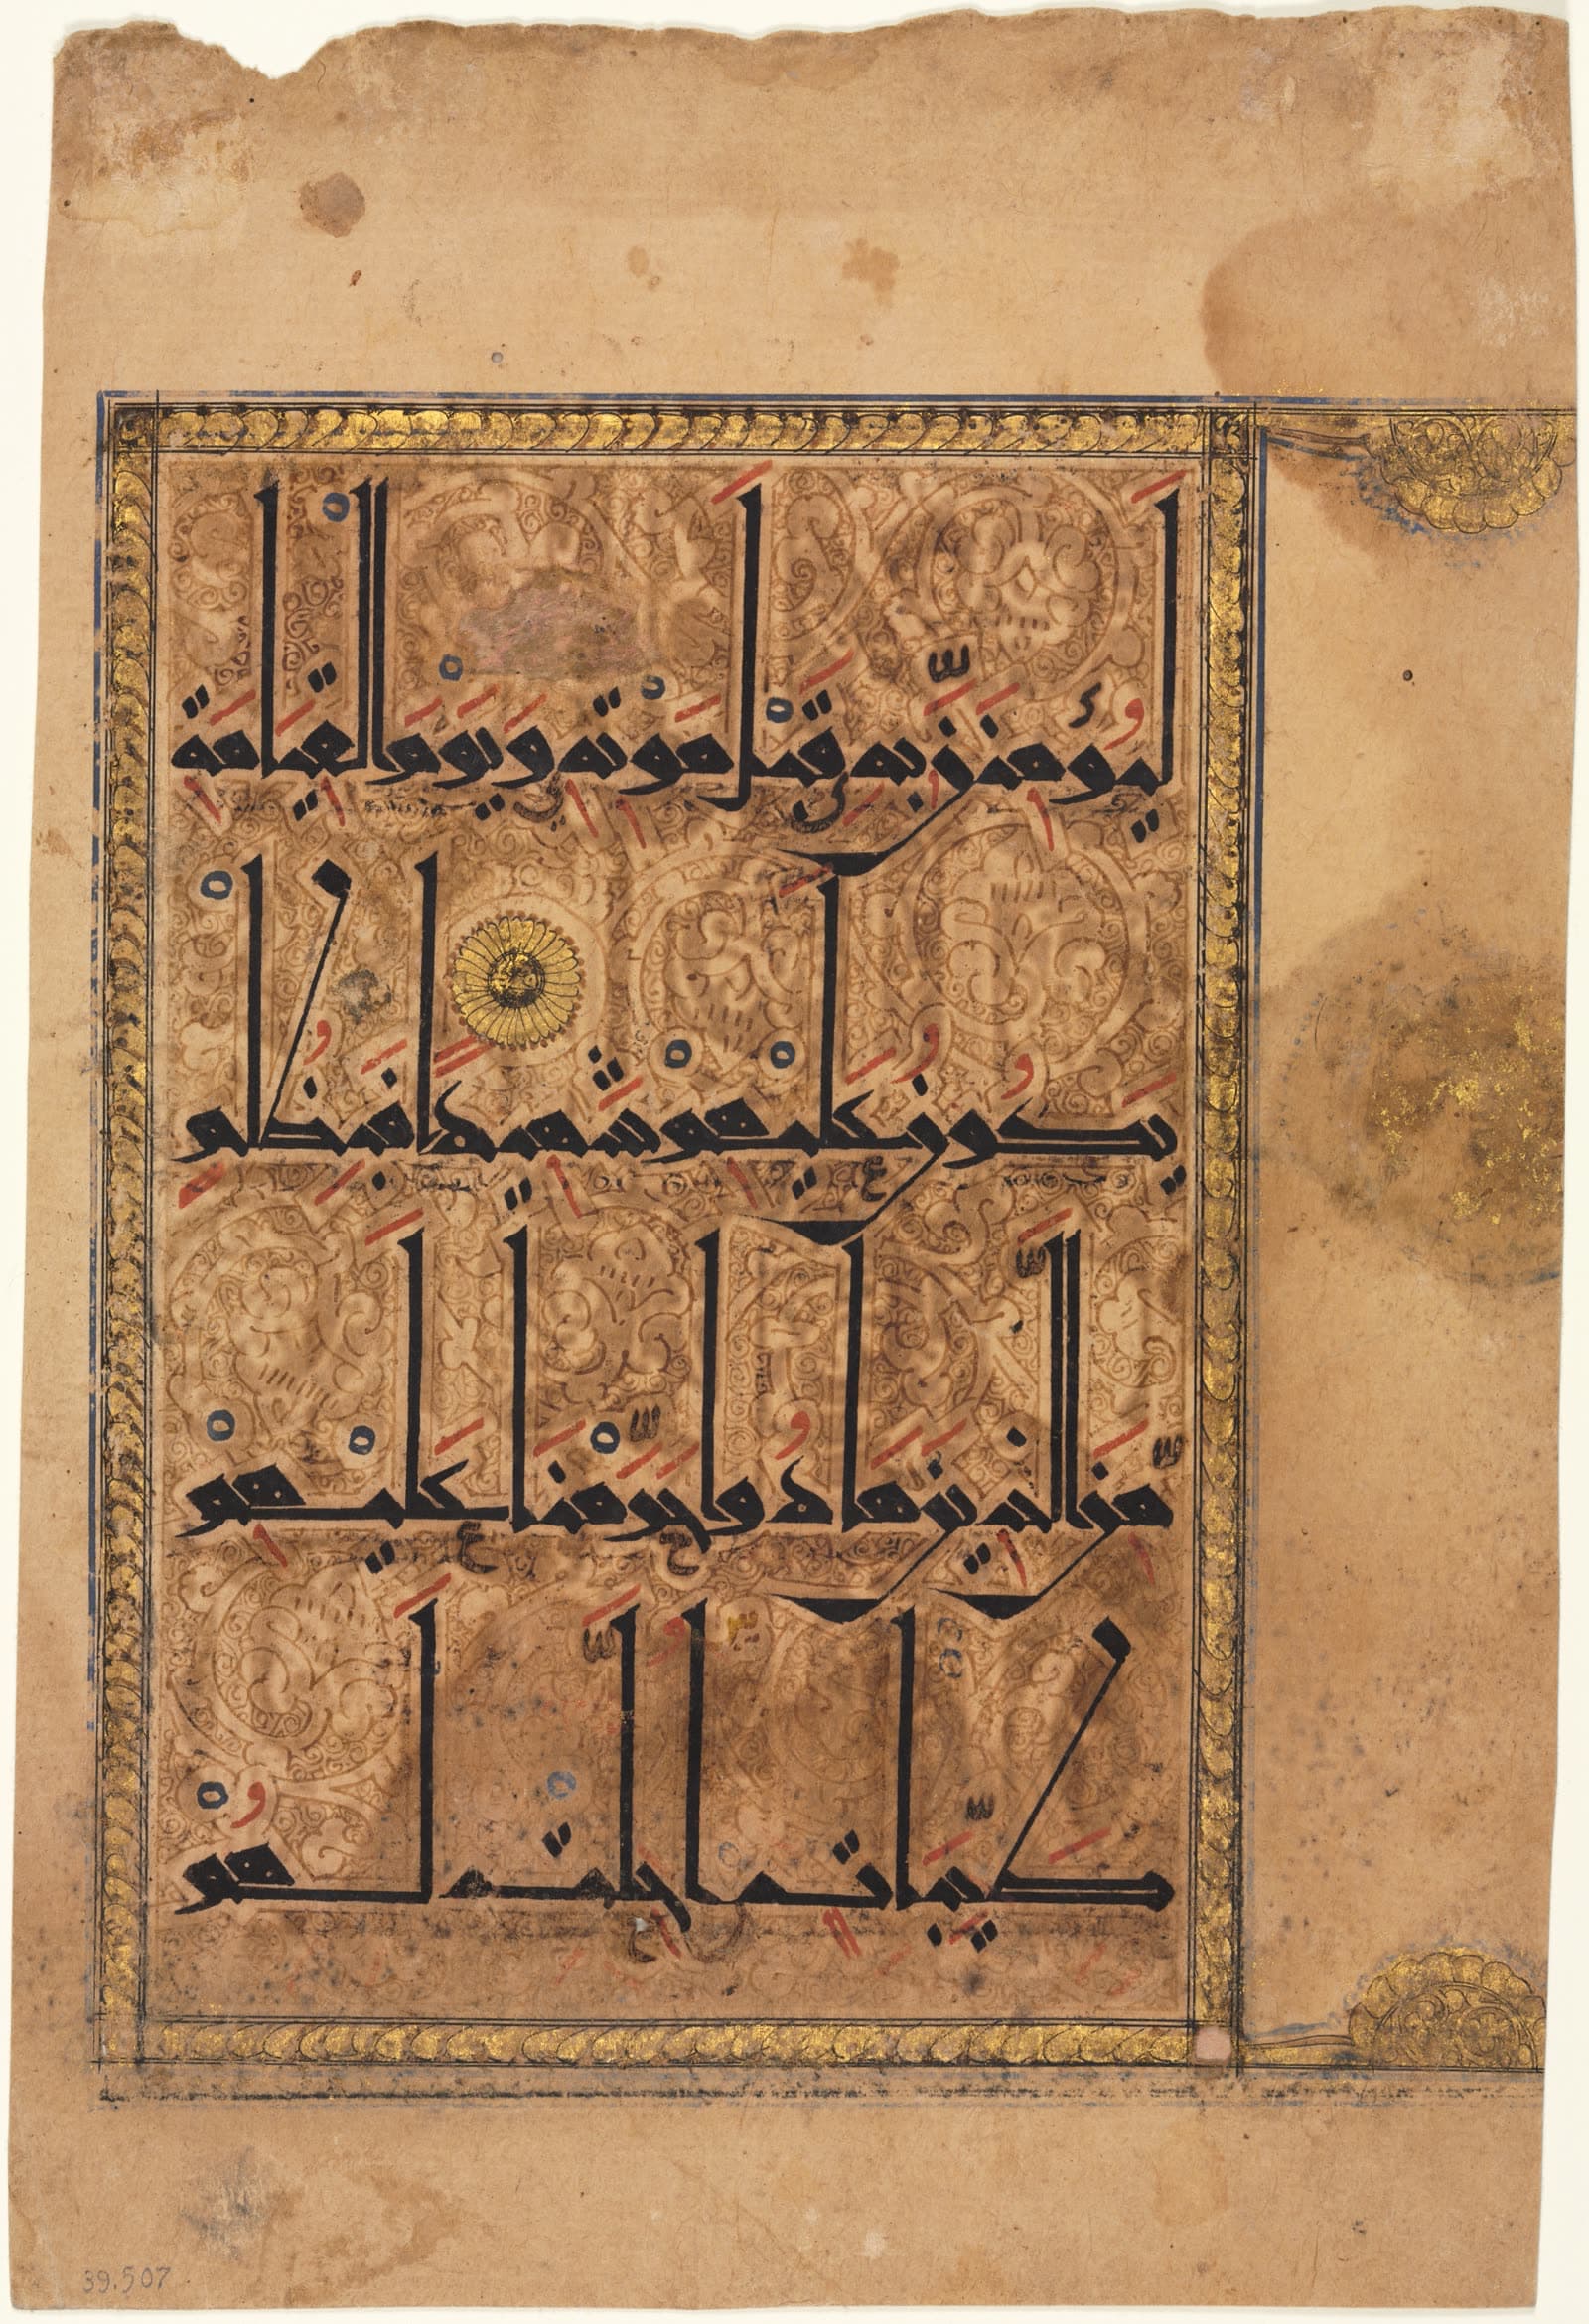 لَيُؤْمِنَنَّ بِهِ قَبْلَ مَوْتِهِ وَيَوْمَ الْقِيَامَةِ
يَكُونُ عَلَيْهِمْ شَهِيدًا فَبِظُلْمٍ
مِنَ الَّذِينَ هَادُوا حَرَّمْنَا عَلَيْهِمْ
طَيِّبَاتٍ أُحِلَّتْ لَهُمْ
39.507